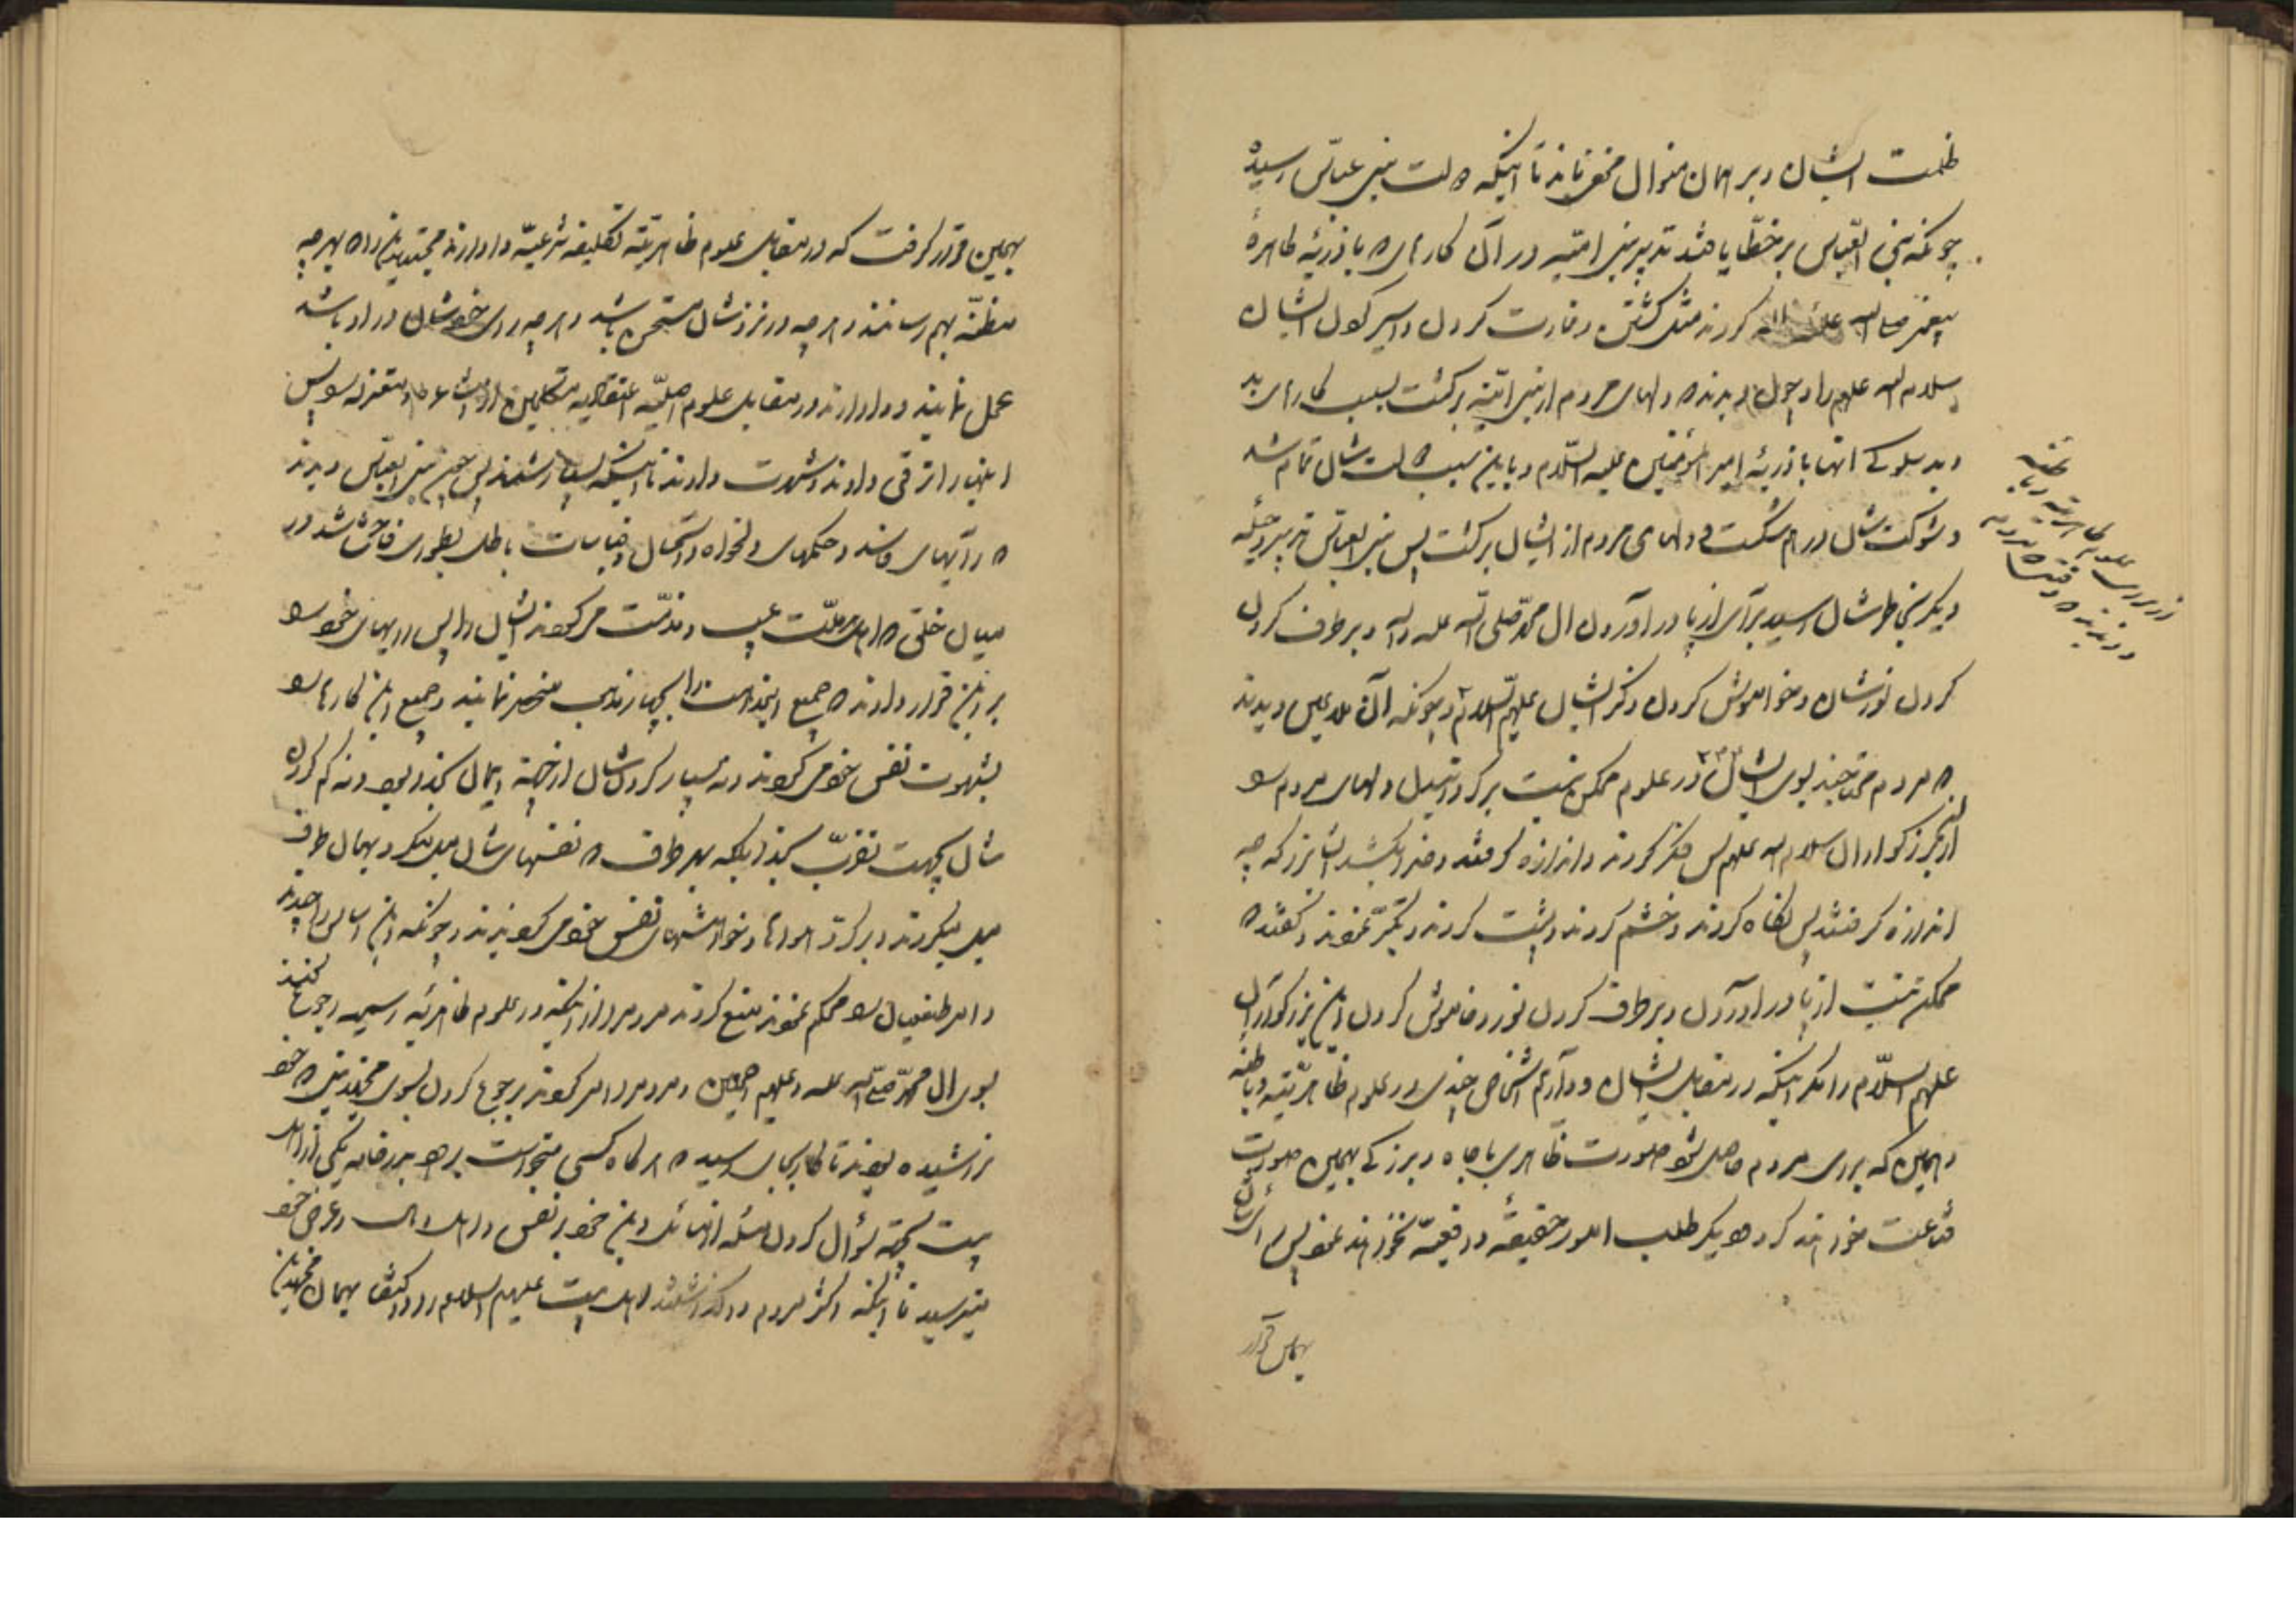 ظلمت ایشان و بر همان منوال مخفی ماندند تا اینکه دولت ببنی عباس رسید
چونکه بنی العباس بر خطا یافتند تدبیر بنی امیّه در آن کارها که با ذریّهٔ طاهرهٔ
پیغمبر صلی الله علیه و اله کردند مثل کشتن و غارت کردن و اسیر کردن ایشان
سلام الله علیهم را و چون دیدند که دلهای مردم از بنی امیّه برگشت بسبب کارهای بد
و بد سلوکی آنها با ذریّهٔ امیر المؤمنین علیه السّلام و باین سبب دولت شان تمام شد
و شوکت شان درهم شکست و دلهای مردم از ایشان برگشت پس بنی العباس تدبیر و حیلهٔ
دیگر بخاطرشان رسید برای از پا در آوردن ال محمّد صلی الله علیه و اله و برطرف کردن
کردن نورشان و خواموش کردن ذکر ایشان علیهم السّلام و چونکه آن ملاعین دیدند
که مردم محتاجند بسوی ایشان در علوم ممکن نیست برگردانیدن دلهای مردم را
از این بزرگواران سلام الله علیهم پس فکر کردند و اندازه گرفتند و خدا بکشد ایشانرا که چه
اندازه گرفتند پس نگاه کردند و خشم کردند و پشت کردند و تکبّر نمودند و گفتند که
ممکن نیست از پا در آوردن و برطرف کردن نور و خاموش کردن این بزرگواران
علیهم السّلام را مگر اینکه در مقابل ایشان وا داریم اشخاص چندی در علوم ظاهریّه و باطنه
و همین که برای مردم حاصل شود صورت ظاهری با جاه و بزرگی بهمین صورت
قناعت خواهند کرد و دیگر طلب امور حقیقیّه واقعیّه نخواهند نمود پس رای شان
بهمین قرار
علوم ظاهریّه و باطنه
بهمین قرار گرفت که در مقابل علوم ظاهریّه تکلیفیه شرعیّه وا دارند مجتهدین را که بهر چه
مظنّه بهم رسانند و هر چه در نزدشان مستحسن باشد و هر چه رای خودشان در او باشد
عمل نمایند و وا دارند در مقابل علوم اصلیّه اعتقادیه متکلمین از اشاعره و معتزله را پس
اینها را ترقی دادند و شهرت دادند تا اینکه بسیار شدند پس چون بنی العباس دیدند
که رایهای فاسد و حکمهای دلخواه و استحسان و قیاسات باطل بطوری فاحش شد در
میان خلق که اهل هر ملّت عیب و مذمّت می کردند ایشان را پس رایهای خود را
بر این قرار دادند که جمیع این مذاهب را بچهار مذهب منحصر نمایند و جمیع این کارها را
بشهوت نفس خود می کردند و نه بسیار کردن شان از جهة ایمان بخدا بود و نه کم کردن
شان بجهت تقرّب بخدا بلکه بهر طرف که نفسهای شان میل میکرد بهمان طرف
میل میکردند و بر گرد هواها و خواهشهای نفس خود می گردیدند و چونکه این اساس را چیدند
و امر طغیان را محکم نمودند منع کردند مردم را از اینکه در علوم ظاهریّه رسمیه رجوع کنند
بسوی ال محمّد صلی الله علیه و علیهم اجمعین و مردم را امر کردند برجوع کردن بسوی مجتهدینی که خود
تراشیده بودند تا کار بجایی رسید که هر گاه کسی میخواست برود بدر خانه یکی از اهل
بیت بجهة سؤال کردن مسئله از مسائل دین خود بر نفس و اهل و مال و عرض خود
میترسید تا اینکه اکثر مردم وا گذاشتند اهل بیت علیهم السلام را و اکتفا بهمان مجتهدین